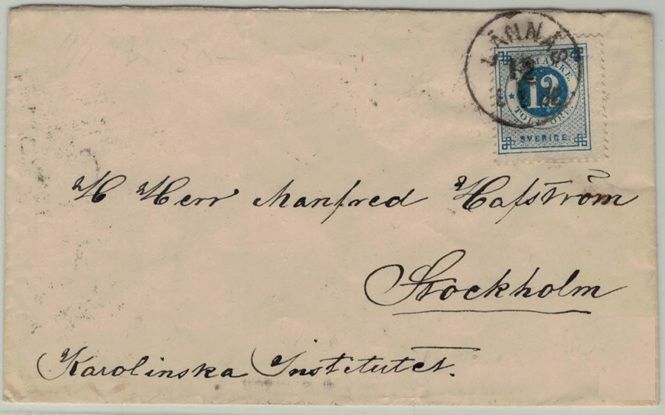 LÄNNÄS
12
FRIMÄRKE
12
TOLF ÖRE
SVERIGE.
H Herr Manfred Hafström
Stockholm
Karolinska Institutet.